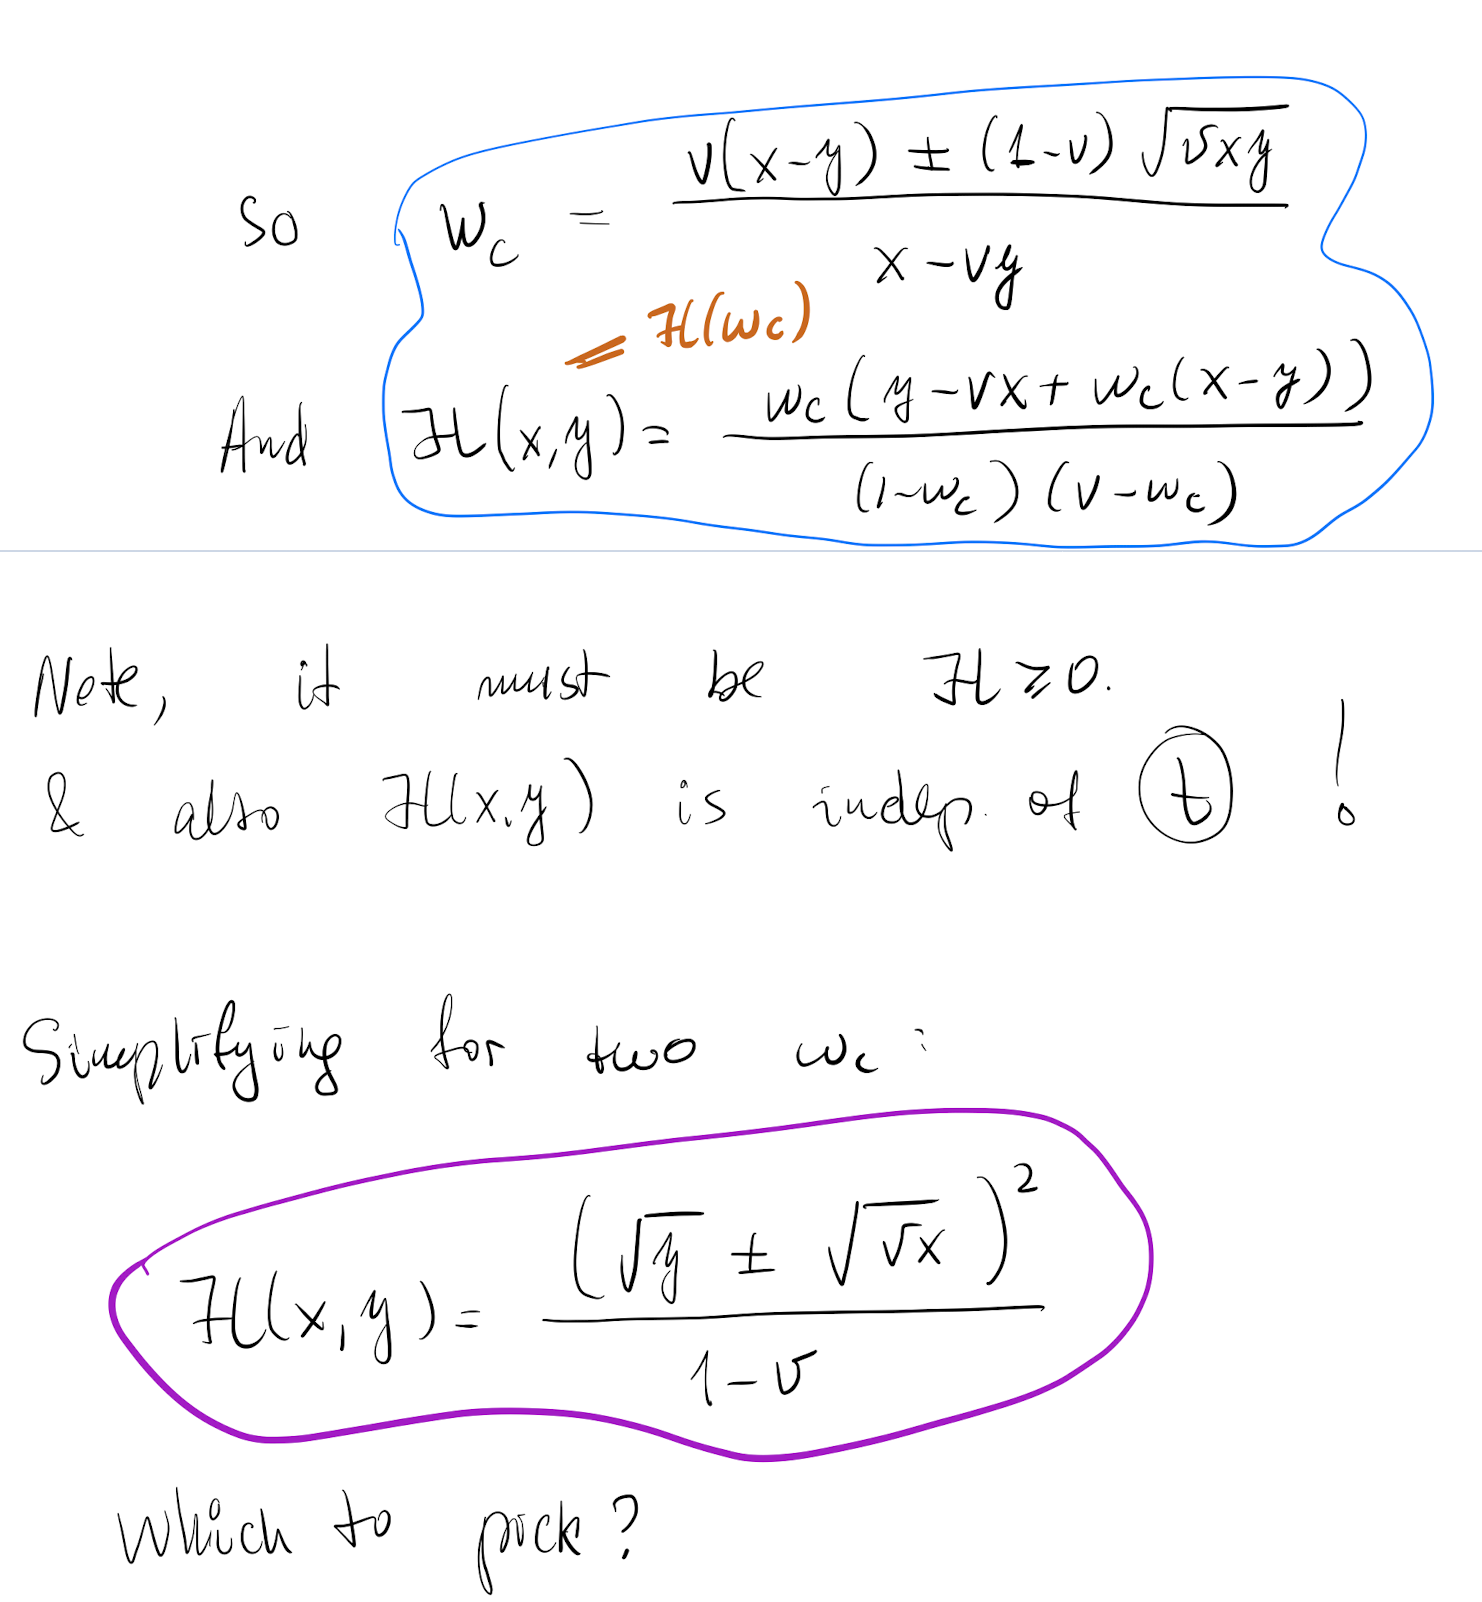 So w_c = (v(x-y) ± (1-v) √(vxy)) / (x-vy)
= H(w_c)
And H(x,y) = w_c(y-vx + w_c(x-y)) / ((1-w_c)(v-w_c))
Note, it must be H ⩾ 0.
& also H(x,y) is indep. of t !
Simplifying for two w_c:
H(x,y) = (√y ± √(vx))² / (1-v)
Which to pick?